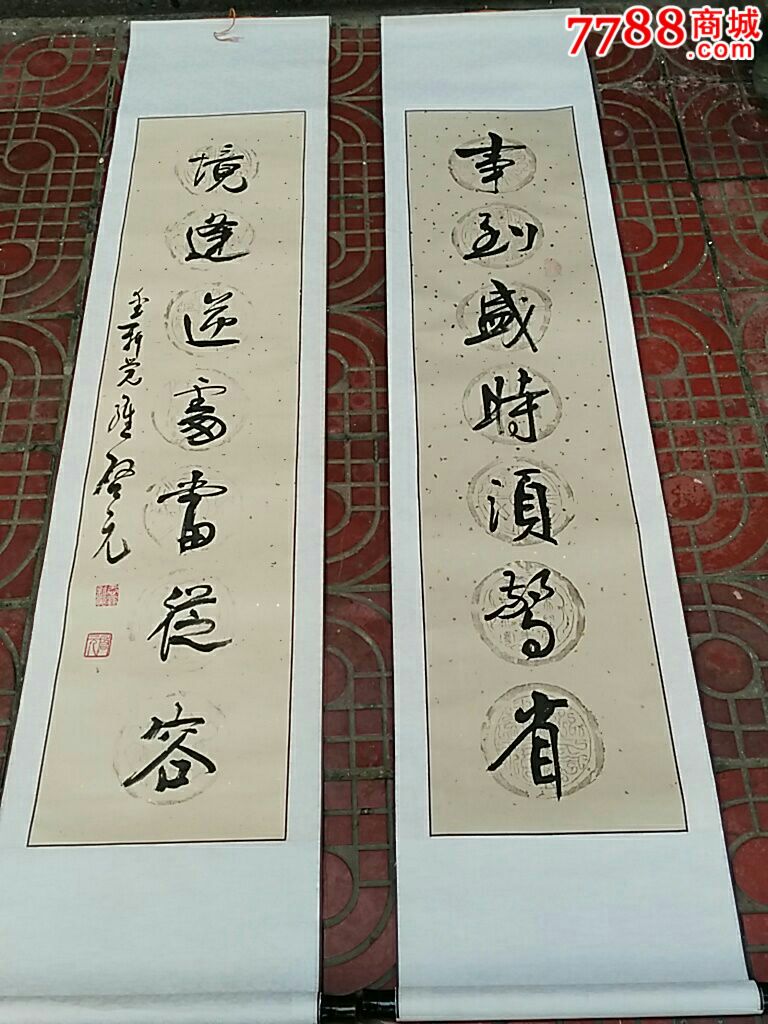 7788商城
.com
事到盛時須警省
境逢逆處當從容
愛新覺羅啓元